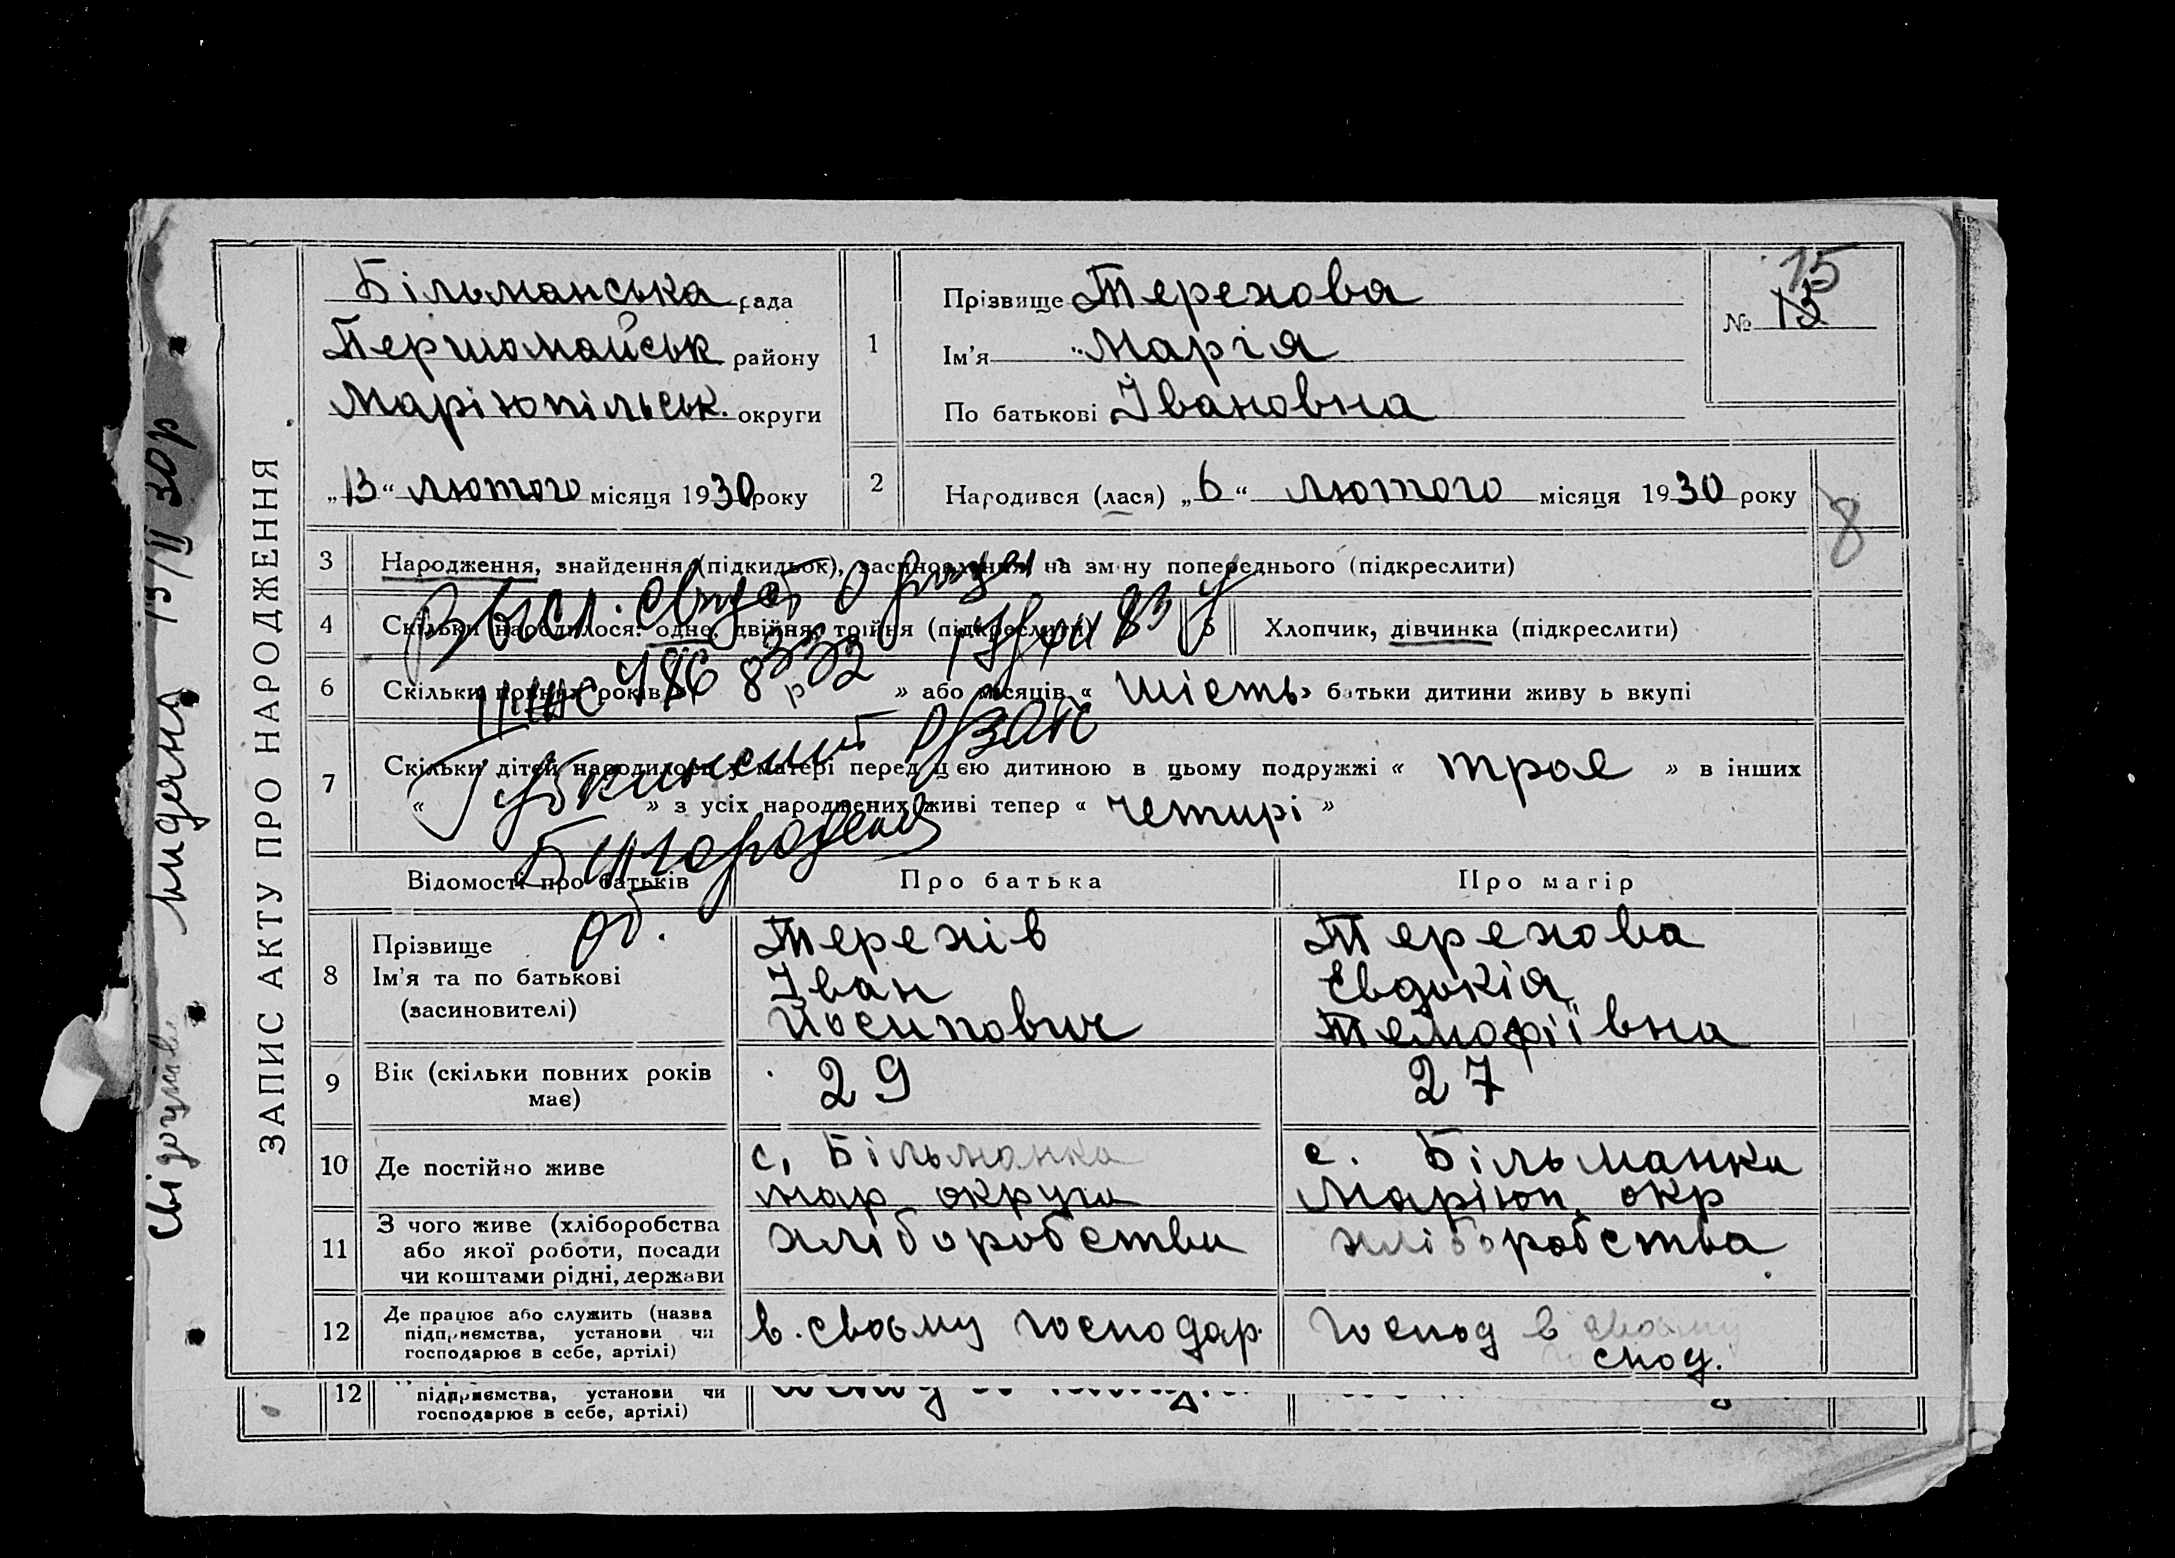 ЗАПИС АКТУ ПРО НАРОДЖЕННЯ
Свідоцтво видано 13/II 30р
Більманська рада
Першомайськ району
Маріюпільськ. округи
„13“ лютого місяця 1930 року
1
Прізвище Терехова
Ім'я Марія
По батькові Івановна
15
№ 13
2
Народився (лася) „6“ лютого місяця 1930 року
8
3 Народження, знайдення (підкидьок), засиновлення на зміну попереднього (підкреслити)
4 Скільки народилося: одне, двійня, трійня (підкреслити) 5 Хлопчик, дівчинка (підкреслити)
6 Скільки повних років » або місяців « шість» батьки дитини живуть вкупі
7 Скільки дітей народилося у матері перед цією дитиною в цьому подружжі « троє » в інших
« » з усіх народжених живі тепер « четирі »
Высл. свидет о рожд
83
486 8332
Губкинский рзагс
Белгородская
об.
Відомості про батьків Про батька Про матір
8 Прізвище Ім'я та по батькові (засиновителі)
Терехів Іван Йосипович
Терехова Евдокія Темофіівна
9 Вік (скільки повних років має) 29 27
10 Де постійно живе
с. Більманка мар округи
с. Більманки Маріюп. окр
11 З чого живе (хліборобства або якої роботи, посади чи коштами рідні, держави
хліборобства хліборобства
12 Де працює або служить (назва підприємства, установи чи господарює в себе, артілі)
в. своьму господар. господ в своьму
спод.
12 підприємства, установи чи
господарює в себе, артілі)